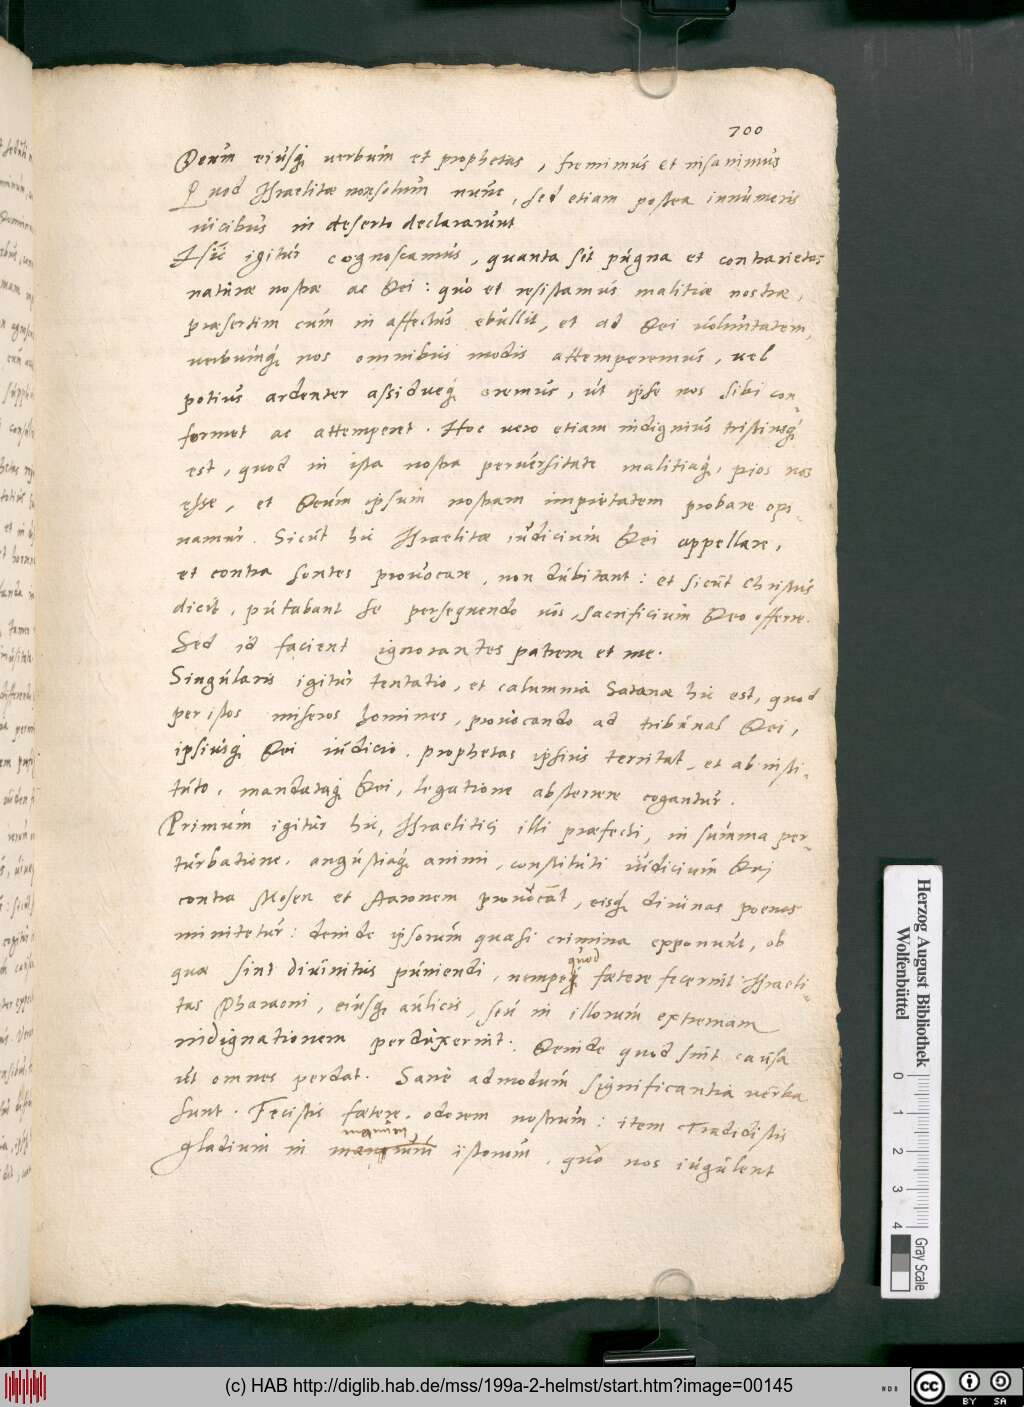 700
Deum eiusq́ verbum et prophetas, fremimus et insanimus
Quod Israelitæ non solum nunc, sed etiam postea innumeris
uicibus in deserto declararunt
Hîc igitur cognoscamus, quanta sit pugna et contrarietas
naturæ nostræ ac Dei: quo et resistamus malitiæ nostræ,
præsertim cum in affectus ebullit, et ad Dei voluntatem,
verbumq́ nos omnibus modis attemperemus, vel
potius ardenter assidueq́ oremus, ut ipse nos sibi con-
formet ac attemperet. Hoc vero etiam indignius tristiusq́
est, quod in ista nostra peruersitate malitiaq́, pios nos
esse, et Deum ipsum nostram impietatem probare opi-
namur. Sicut hic Israelitæ iudicium Dei appellare,
et contra sontes prouocare, non dubitant: et sicut Christus
dicit, putabunt se persequendo uos, sacrificium Deo offerre.
Sed id facient ignorantes patrem et me.
Singularis igitur tentatio, et calumnia Satanæ hic est, quod
per istos miseros homines, prouocando ad tribunal Dei,
ipsiusq́ Dei iudicio, prophetas ipsius territat, et ab insti-
tuto, mandataq́ Dei, legatione absterrere cogantur.
Primum igitur hic, Israelitici illi præfecti, in summa per-
turbatione, angustiaq́ animi, constituti iudicium Dei
contra Mosen et Aaronem prouocāt, eisq́ diuinas poenas
minitetur: deinde ipsorum quasi crimina exponunt, ob
quod
quæ sint diuinitus puniendi, nempe q́ fætere fecerint Israeli-
tas Pharaoni, eiusq́ aulicis, seu in illorum extremam
indignationem perduxerint. Deinde quod sint causa
ut omnes perdat. Sane admodum significantia verba
sunt. Fecistis fætere, odorem nostrum: item Tradidistis
manum
gladium in manum istorum, quo nos iugulent
Herzog August Bibliothek
Wolfenbüttel
0 1 2 3 4
Gray Scale
(c) HAB http://diglib.hab.de/mss/199a-2-helmst/start.htm?image=00145
cc BY SA